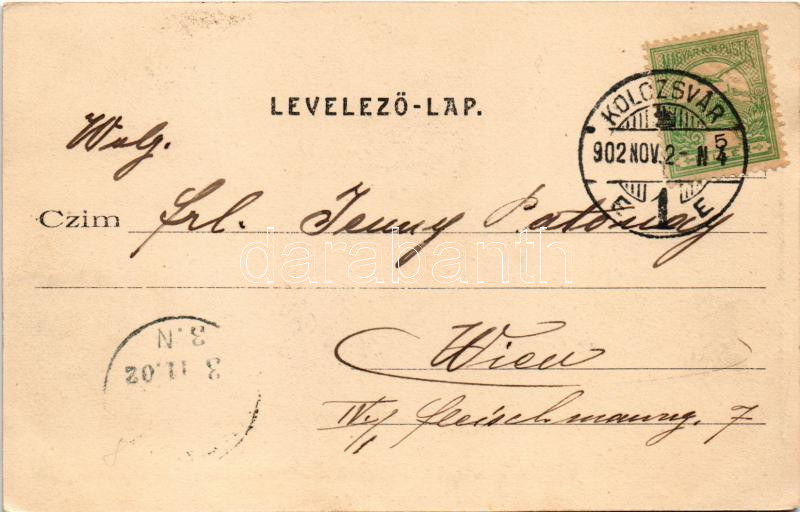 LEVELEZŐ-LAP.
MAGYAR KIR. POSTA
KOLOZSVÁR
902 NOV. 2 - N 5/4
1
E
Wolg.
Czim Frl. Jenny Patonay
darabanth
Wien
IV./1 Fleischmanng. 7
3.N
3 11.02